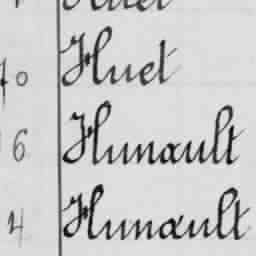 Huet
70 Huet
6 Hunault
4 Hunault